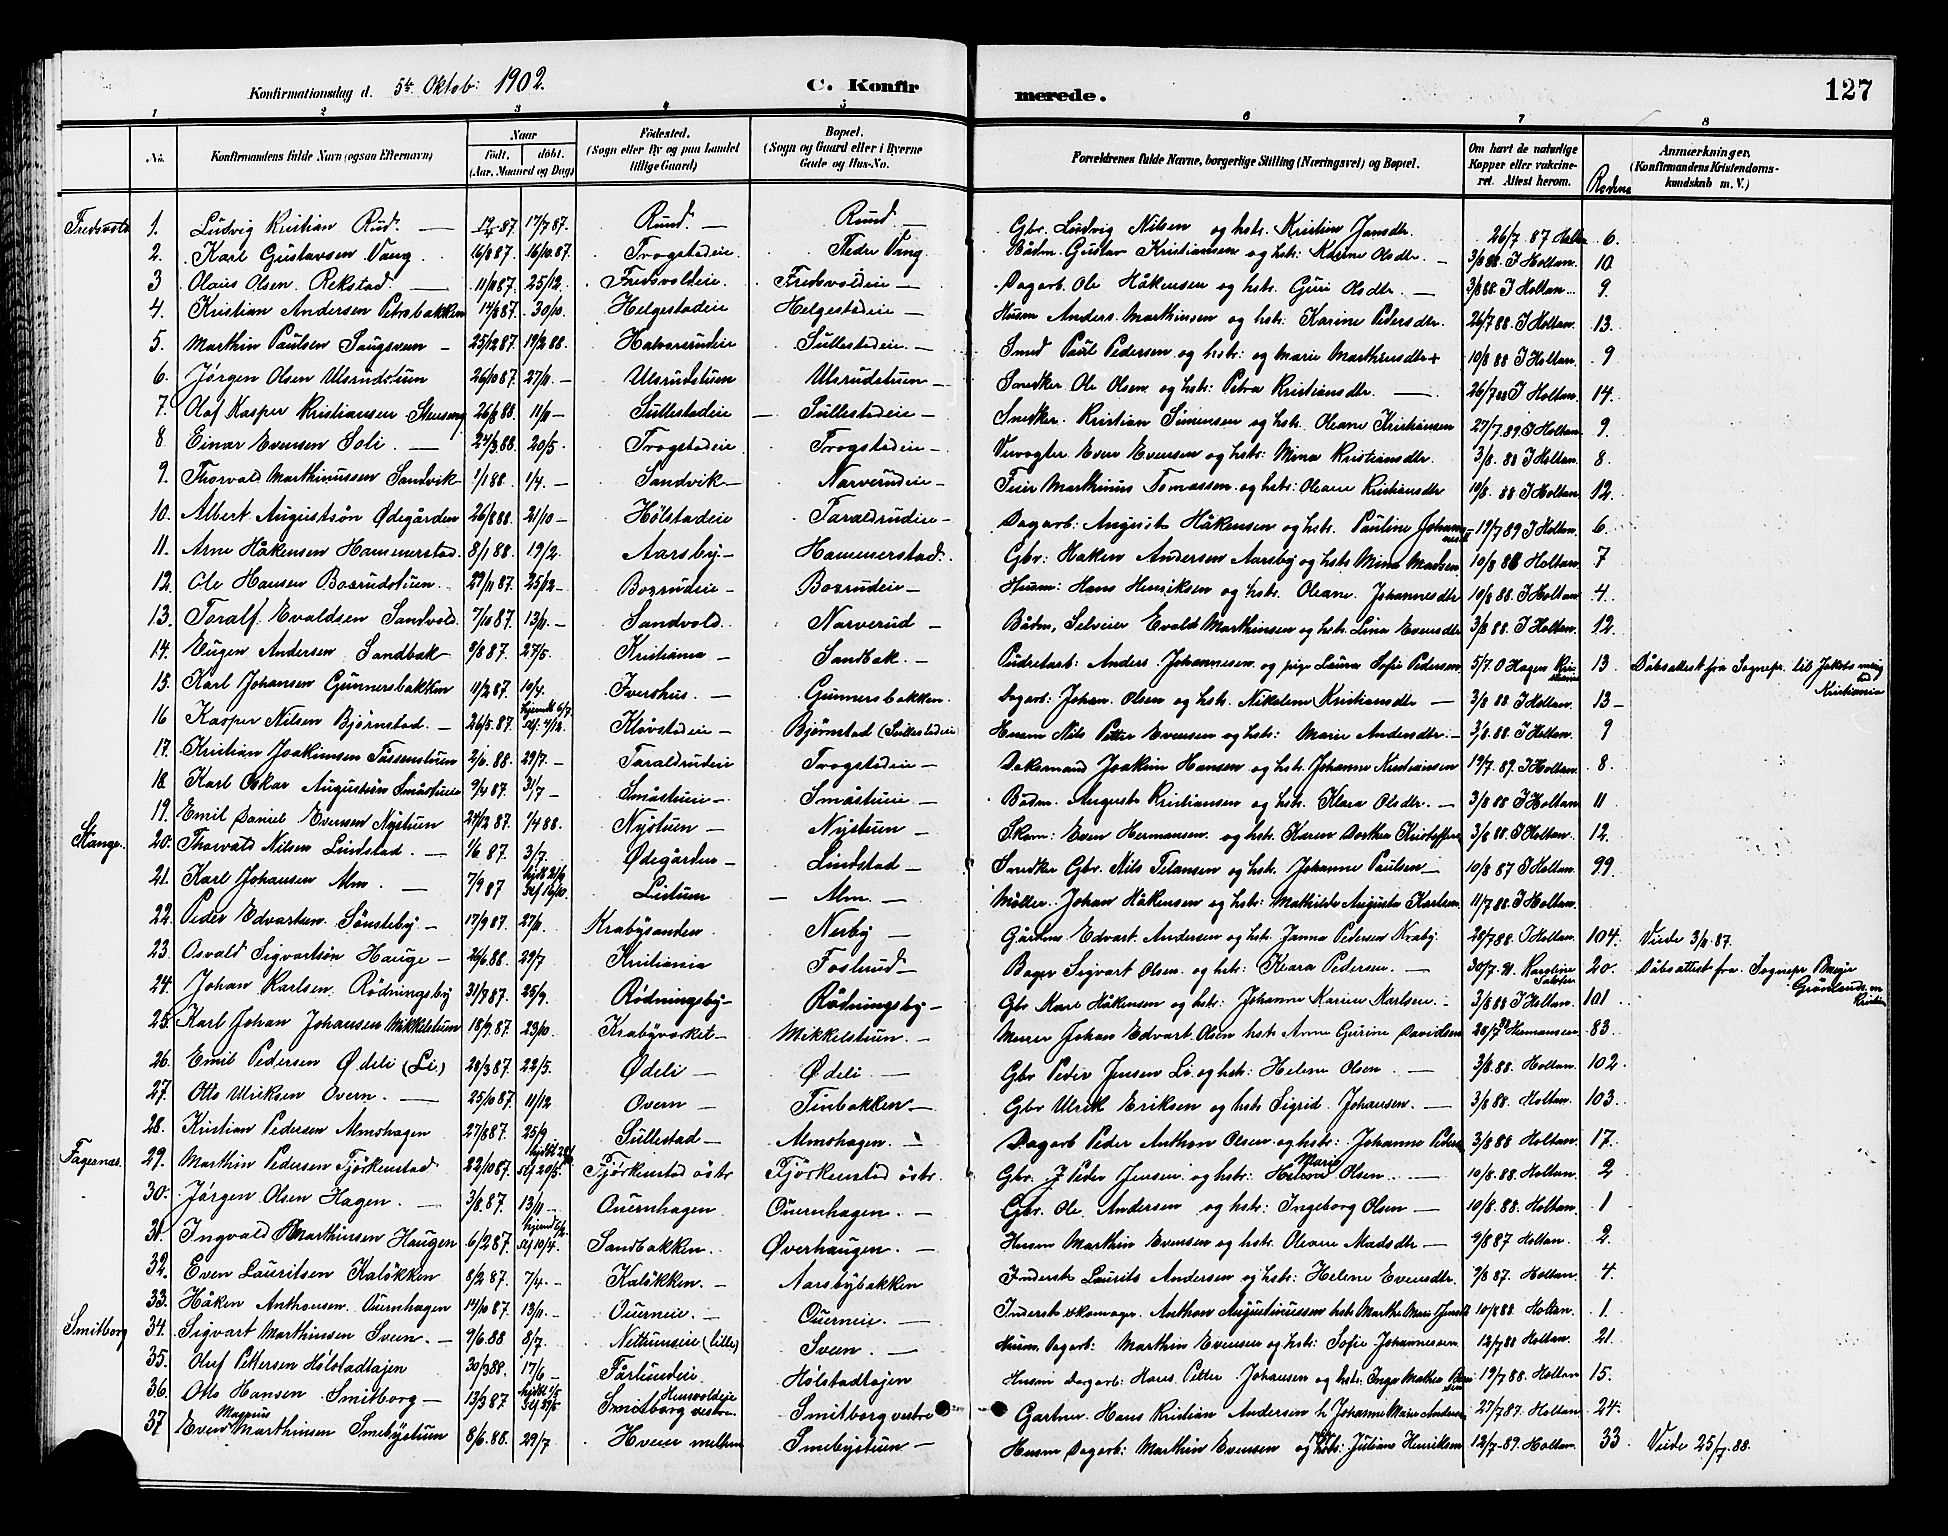 Konfirmationsdag d. 5te Oktob: 1902. C. Konfirmerede. 127
1 2 3 4 5 6 7 8
No. Konfirmandens fulde Navn (ogsaa Efternavn) Naar født, døbt. (Aar, Maaned og Dag) Fødested. (Sogn eller By og paa Landet tillige Gaard) Bopæl. (Sogn og Gaard eller i Byerne Gade og Hus-No. Forældrenes fulde Navne, borgerlige Stilling (Næringsvei) og Bopæl. Om havt de naturlige Kopper eller vakcineret. Attest herom. Rodens Anmærkninger. (Konfirmandens Kristendomskundskab m. V.)
Fredsvold 1. Ludvig Kristian Rud. — 87. 17/7 87. Rund. — Rund — Gbr. Ludvig Nilsen og hstr. Kristin Jansdr. 26/7 87 Holtan 6.
2. Karl Gustavsen Vang. 16/8 87. 16/10 87. Trogstadeie Nedre Vang. Bådm. Gustav Kristiansen og hstr: Karine Olsdtr. — 3/8 88. J Holtan. 10
3. Olaus Olsen Rekstad. — 11/10 87. 25/12. Fredsvoldeie — Fredsvoldeie — Dagarb. Ole Håkensen og hstr. Guri Olsdtr. — 3/8 88. J Holtan. 9
4. Kristian Andersen Petrabakken 14/8 87. 30/10. Helgestadeie Helgestadeie — Husm Anders Marthinsen og hstr: Karine Pedersdtr. 26/7 88. J Holtan. 13.
5. Marthin Paulsen Saugsveen — 25/12 87. 19/2 88. Halvorsrudeie Sullestadeie. — Smed Paul Pedersen og hstr: og Marie Marthinsdtr 10/8 88 J Holtan. 9
6. Jørgen Olsen Ulsrudstuen 26/10 87. 27/11 — Ulsrudstuen Ulsrudstuen — Snedker Ole Olsen og hstr: Petra Kristiansdtr. — 26/7 88 J Holtan. 14.
7. Olaf Kasper Kristiansen 26/8 88. 11/11 — Sullestadeie — Sullestadeie — Snedker. Kristian Simensen og hstr. Oleane Kristiansen 27/7. 89. J Holtan 9.
8. Einar Evensen Soli. — 24/3 88. 20/5. Trogstadeie Trogstadeie. — Vervogter Even Evensen og hstr: Mina Kristiansdtr. 3/8. 88 J Holtan. 8.
9. Thorvald Marthinussen Sandvik 1/1 88. 1/4. — Sandvik — Narverudeie — Feier Marthinus Tomassen og hstr: Oleane Kristiansdtr 10/8. 88 J Holtan. 12.
10. Albert Augustsøn Ødegården 26/8 88. 21/10 — Hølstadeie Taraldrudeie — Dagarb: August Håkensen og hstr. Pauline Johannesdtr 19/7 89 J Holtan. 6.
11. Arne Håkensen Hammerstad. 8/1 88. 19/2. Aarsby — Hammerstad. Gbr: Håken Andersen Aarsby og hstr Mina Madsen 10/8 88 Holtan. 7
12. Ole Hansen Bosrudstuen. — 29/11 87. 25/12 — Bosrudeie — Bosrudeie — Husm: Hans Henriksen og hstr. Oleane. Johannesdtr 10/8 88. J Holtan 4.
13. Toralf Evaldsen Sandvold. 7/10 87. 13/11. — Sandvold. Narverud — Bådm, Selveier Evald Marthinsen og hstr: Lina Evensdtr. 3/8 88. J Holtan. 12.
14. Eugen Andersen Sandbak — 9/8 87. 27/5. Kristiania — Sandbak. — Pudretarb: Anders Johannesen og pige Laura Sofie Pedersen. 5/7. O Hagen Kristiania 13 Dåbsattest fra Sognepr. til Jakobs menighed Kristiania
15. Karl Johansen Gunnersbakken 11/2 87. 10/4. Ivershus. — Gunnersbakken. Dagarb: Johan Olsen og hstr. Nikoline Kristiansdtr — 3/8 88 J Holtan. 13 —
16 Kasper Nilsen Bjørnstad. — 26/5. 87. hjemdt 6/7 kf. 4/12. Kløvstadeie — Bjørnstad (Sullestadeie Husm Nils Petter Evensen og hstr: Marie Andersdtr. — 3/8. 88. J Holtan. 9
17. Kristian Joakimsen Fossenstuen 2/6. 88. 29/7. Taraldrudeie Trogstadeie — Daksmand Joakim Hansen og hstr. Johanne Kristiansen 19/7. 89. J Holtan. 8.
18. Karl Oskar Augustsøn Småstueie 9/4 87. 31/7 — Småstueie —. Småstueie — Bådm. August Kristiansen og hstr. Klara Olsdtr. — 3/8 88 J Holtan. 11
19. Emil Daniel Evensen Nystuen 24/12 87. 1/4 88. Nystuen — Nystuen — Skom: Even Hermansen og hstr: Karen Dorthea Kristoffersen 3/8. 88. J Holtan. 12.
Stange. 20. Thorvald Nilsen Lindstad. — 1/6 87. 3/7. Ødegården — Lindstad — Snedker Gbr. Nils Jelansen og hstr. Johanne Paulsen — 10/8 87 J Holtan. 99.
21. Karl Johansen Alm. — 7/9 87 hjdt 21/9 kf 16/10. Listuen — Alm. — Møller. Johan Håkensen og hstr: Mathilde Augusta Karlsen. 11/7 88. J Holtan.
22. Peder Edvartsen Sønsteby — 17/9 87. 27/11. Krabysanden Nerby — Gårdm Edvart Andersen og hstr. Janna Pedersen Kraby. 28/7 88. J Holtan. 104. Viede 3/11. 87.
23. Osvald Sigvartsøn Hauge — 29/6. 88. 29/7 Kristiania Foslund — Bager Sigvart Olsen og hstr: Klara Pedersen. — 30/7. 91. Karoline 20. Dåbsattest fra. Sognepr Meyer Grønlands m Kristiania
24. Johan Karlsen Rødningsby 31/7 87. 25/9. Rødningsby — Rødningsby — Gbr Karl Håkensen og hstr: Johanne Karine Karlsen — 3/8 88 J Holtan 101
25. Karl Johan Johansen Mikkelstuen 18/9 87. 23/10. Krabyvosket — Mikkelstuen. — Murer Johan Edvart Olsen hstr Anne Gurine Davidsen 28/7 Hermansen 83.
26. Emil Pedersen Ødeli (Li.) 20/3 87. 22/5. Ødeli — Ødeli. — Gbr Peder Jensen Li og hstr: Helene Olsen. — 3/8. 88. Holtan. 102.
27. Otto Ulriksen Overn. — 25/10 87. 11/12 Overn — Finbakken — Gbr Ulrik Eriksen og hstr Sigrid Johansen. — 3/8 88. Holtan. 103.
28. Kristian Pedersen Almshagen 27/8 87. 25/9 Sullestad — Almshagen. — Dagarb Peder Anthon Olsen og hstr: Johanne Pedersen 3/8 88 Holtan. 17.
Fagernæs. 29. Marthin Pedersen Tjørkenstad 22/10 87. Tjørkenstad östr Tjørkenstad östr. Gbr. Peder Jensen og hstr: Marie Olsen. — 10/8. 88. Holtan. 2
30. Jørgen Olsen Hagen. — 3/8. 87. 13/11 — Ouernhagen Ouernhagen. — Gbr. Ole Andersen og hstr: Ingeborg Olsen — 10/8. 88. Holtan. 1
31. Ingvald Marthinsen Haugen 6/2 87. kf 10/4. Sandbakken. Øverhaugen. — Husm Marthin Evensen og hstr. Oleane Madsdtr — 9/8 87 Holtan. 2.
32. Even Lauritsen Kaløkken 8/2 87. 7/4. — Kaløkken. — Aarsbybakken Inderst Laurits Andersen og hstr: Helene Evensdtr. 9/8 87. Holtan. 4.
33. Håken Anthonsen Ouernhagen 14/10 87. 13/11. Ouerneie. — Ouerneie. — Inderst skomager. Anthon Augustinussen hstr Marthe Marie Jensdtr 10/8 88. Holtan. 1.
Smitborg 34. Sigvart Marthinsen Sveen. — 9/6. 88 8/7. Netumseie (lille) Sveen. — Husm, Dagarb: Marthin Evensen og hstr: Sofie Johannessen 12/7 88 Holtan. 21.
35. Oluf Pettersen Hølstadløjen 30/3 88. 17/6 — Fårlundeie. Hølstadløjen Husm dagarb: Hans Petter Johansen og hstr: Inga Mathea 19/7 88. Holtan 15.
36. Otto Hansen Smitborg — 13/3 87 Hensvoldeie Smitborg vestre. Smitborg vestre Gartner. Hans Kristian Andersen h Johanne Marie Andersen 27/7 87. Holtan. 24.
37 Even Magnus Marthinsen Smebystuen 8/6. 88. 29/7. Hveem mellem Smebystuen — Husm Dagarb: Marthin Evensen og hstr: Juliane Henriksen 12/7. 89. Holtan. 33. Viede 25/7. 88.